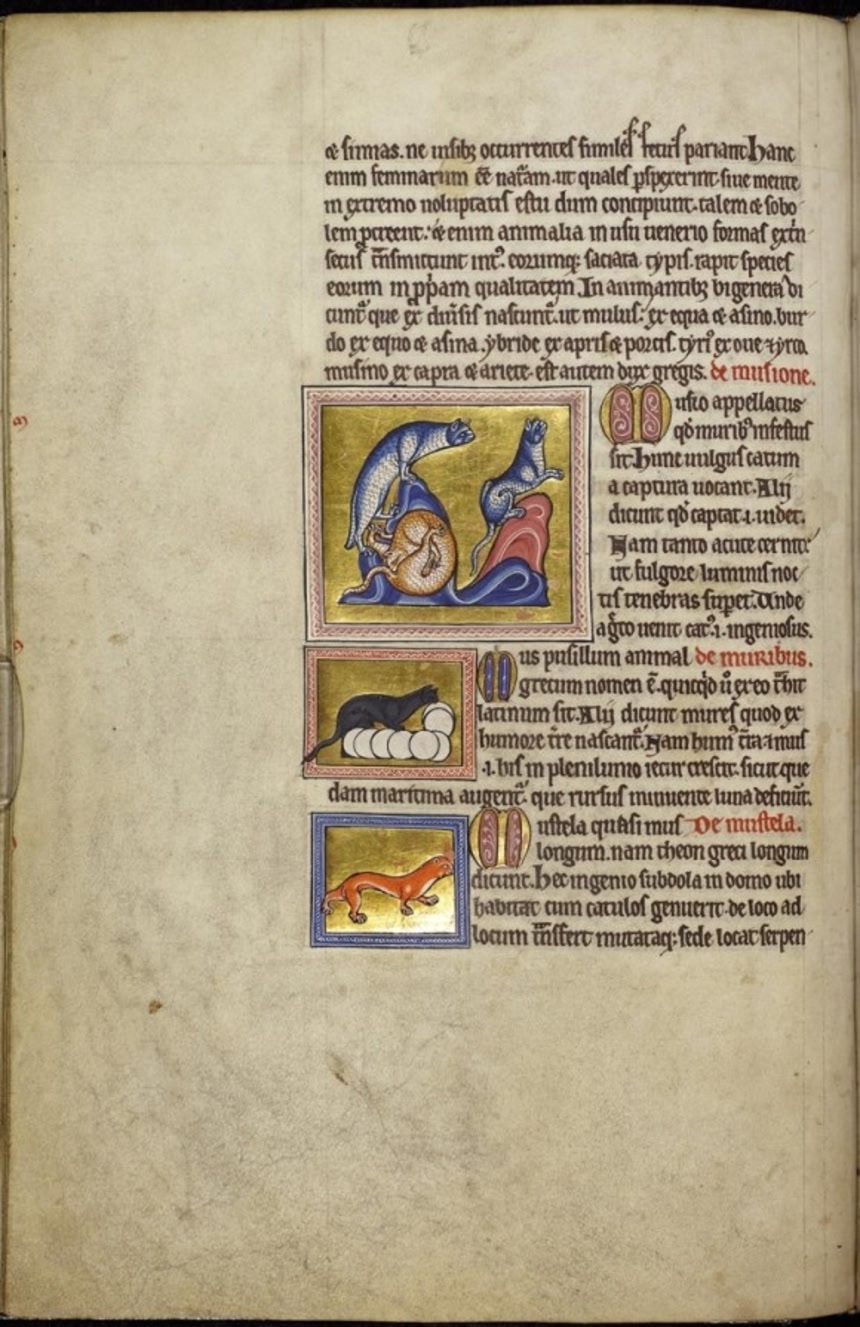 & simias. ne insibꝫ occurrentes similes fetus pariant. Hanc
enim feminarum ēē nat̄am. ut quales ꝑspexerint siue mente
in extremo uoluptatis estu dum concipiunt. talem & sobo
lem ꝓcreent. &enim animalia in usu uenerio formas extͥn
secus t̄nsmittunt int᷒. eorumqꝫ saciata typis. rapit species
eorum in ꝓpͥam qualitatem. In animantibꝫ bigenera di
cunt᷒ que ex diuͥsis nascunt᷒. ut mulus. ex equa & asino. bur
do ex equo & asina. ybride ex apris & porcis. tyriꝰ ex oue & yrco.
musmo ex capra & ariete. est autem dux gregis. de musione.
Musio appellatus
qđ muribꝰ infestus
sit. Hunc uulgus catum
a captura uocant. Alij
dicunt qđ captat .i. uidet.
Nam tanto acute cernit.
ut fulgore luminis noc
tis tenebras suꝑet. Unde
a g̊co uenit catꝰ .i. ingeniosus.
Mus pusillum animal de muribus.
grecum nomen ē. quicqͥd ů ex eo t͂hit
latinum sit. Alij dicunt mures quod ex
humore t̄re nascant᷒. Nam humꝰ t̄ra .i. mus
.i. his in plenilunio iecur crescit. sicut que
dam maritima augent᷒. que rursus minuente luna deficiūt.
Mustela quasi mus De mustela.
longum. nam theon greci longum
dicunt. Hec ingenio subdola in domo ubi
habitat cum catulos genuerit. de loco ad
locum t̄nsfert mutataqꝫ sede locat. serpen